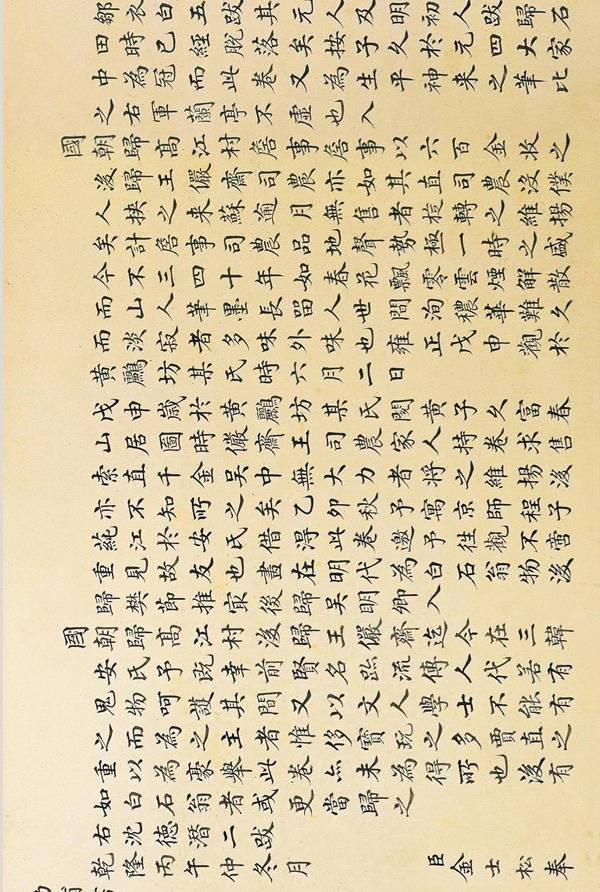 鄒衣白五跋其元人及明初人跋歸石
田時已經脫落矣按子久於元四大家
中為冠而此卷又為生平神來之筆比
之右軍蘭亭不虛也入
國朝歸高江村詹事詹事以六百金收之
後歸王儼齋司農亦如其直司農沒僕
人挾之來蘇逾月無售者旋轉之維揚
矣計詹事司農品地聲勢極一時之盛
今不三四十年如春花飄零雲煙解散
而山人筆墨長留人世間洵穠華難久
而淡寂者多味外味也雍正戊申觀於
黃鸝坊某氏時六月二日
戊申歲於黃鸝坊某氏閱黃子久富春
山居圖時儼齋王司農家人持卷求售
索直千金吳中無大力者將之維揚後
亦不知所之矣乙卯秋予寓京師程子
蒓江於安氏借得此卷邀予往觀不啻
重見故友也畫在明代為白石翁物後
歸樊節推寅後歸吳明卿入
國朝歸高江村後歸王儼齋迄今在三韓
安氏予既幸前賢名跡流傳人代若有
鬼物呵護其間又以文人學士不能有
之而為之主者惟侈寶玩之多賈直之
重以為豪舉此卷亦未為得所也後有
如白石翁者或更當歸之
右沈德潛二跋
乾隆丙午仲冬月 臣金士松奉